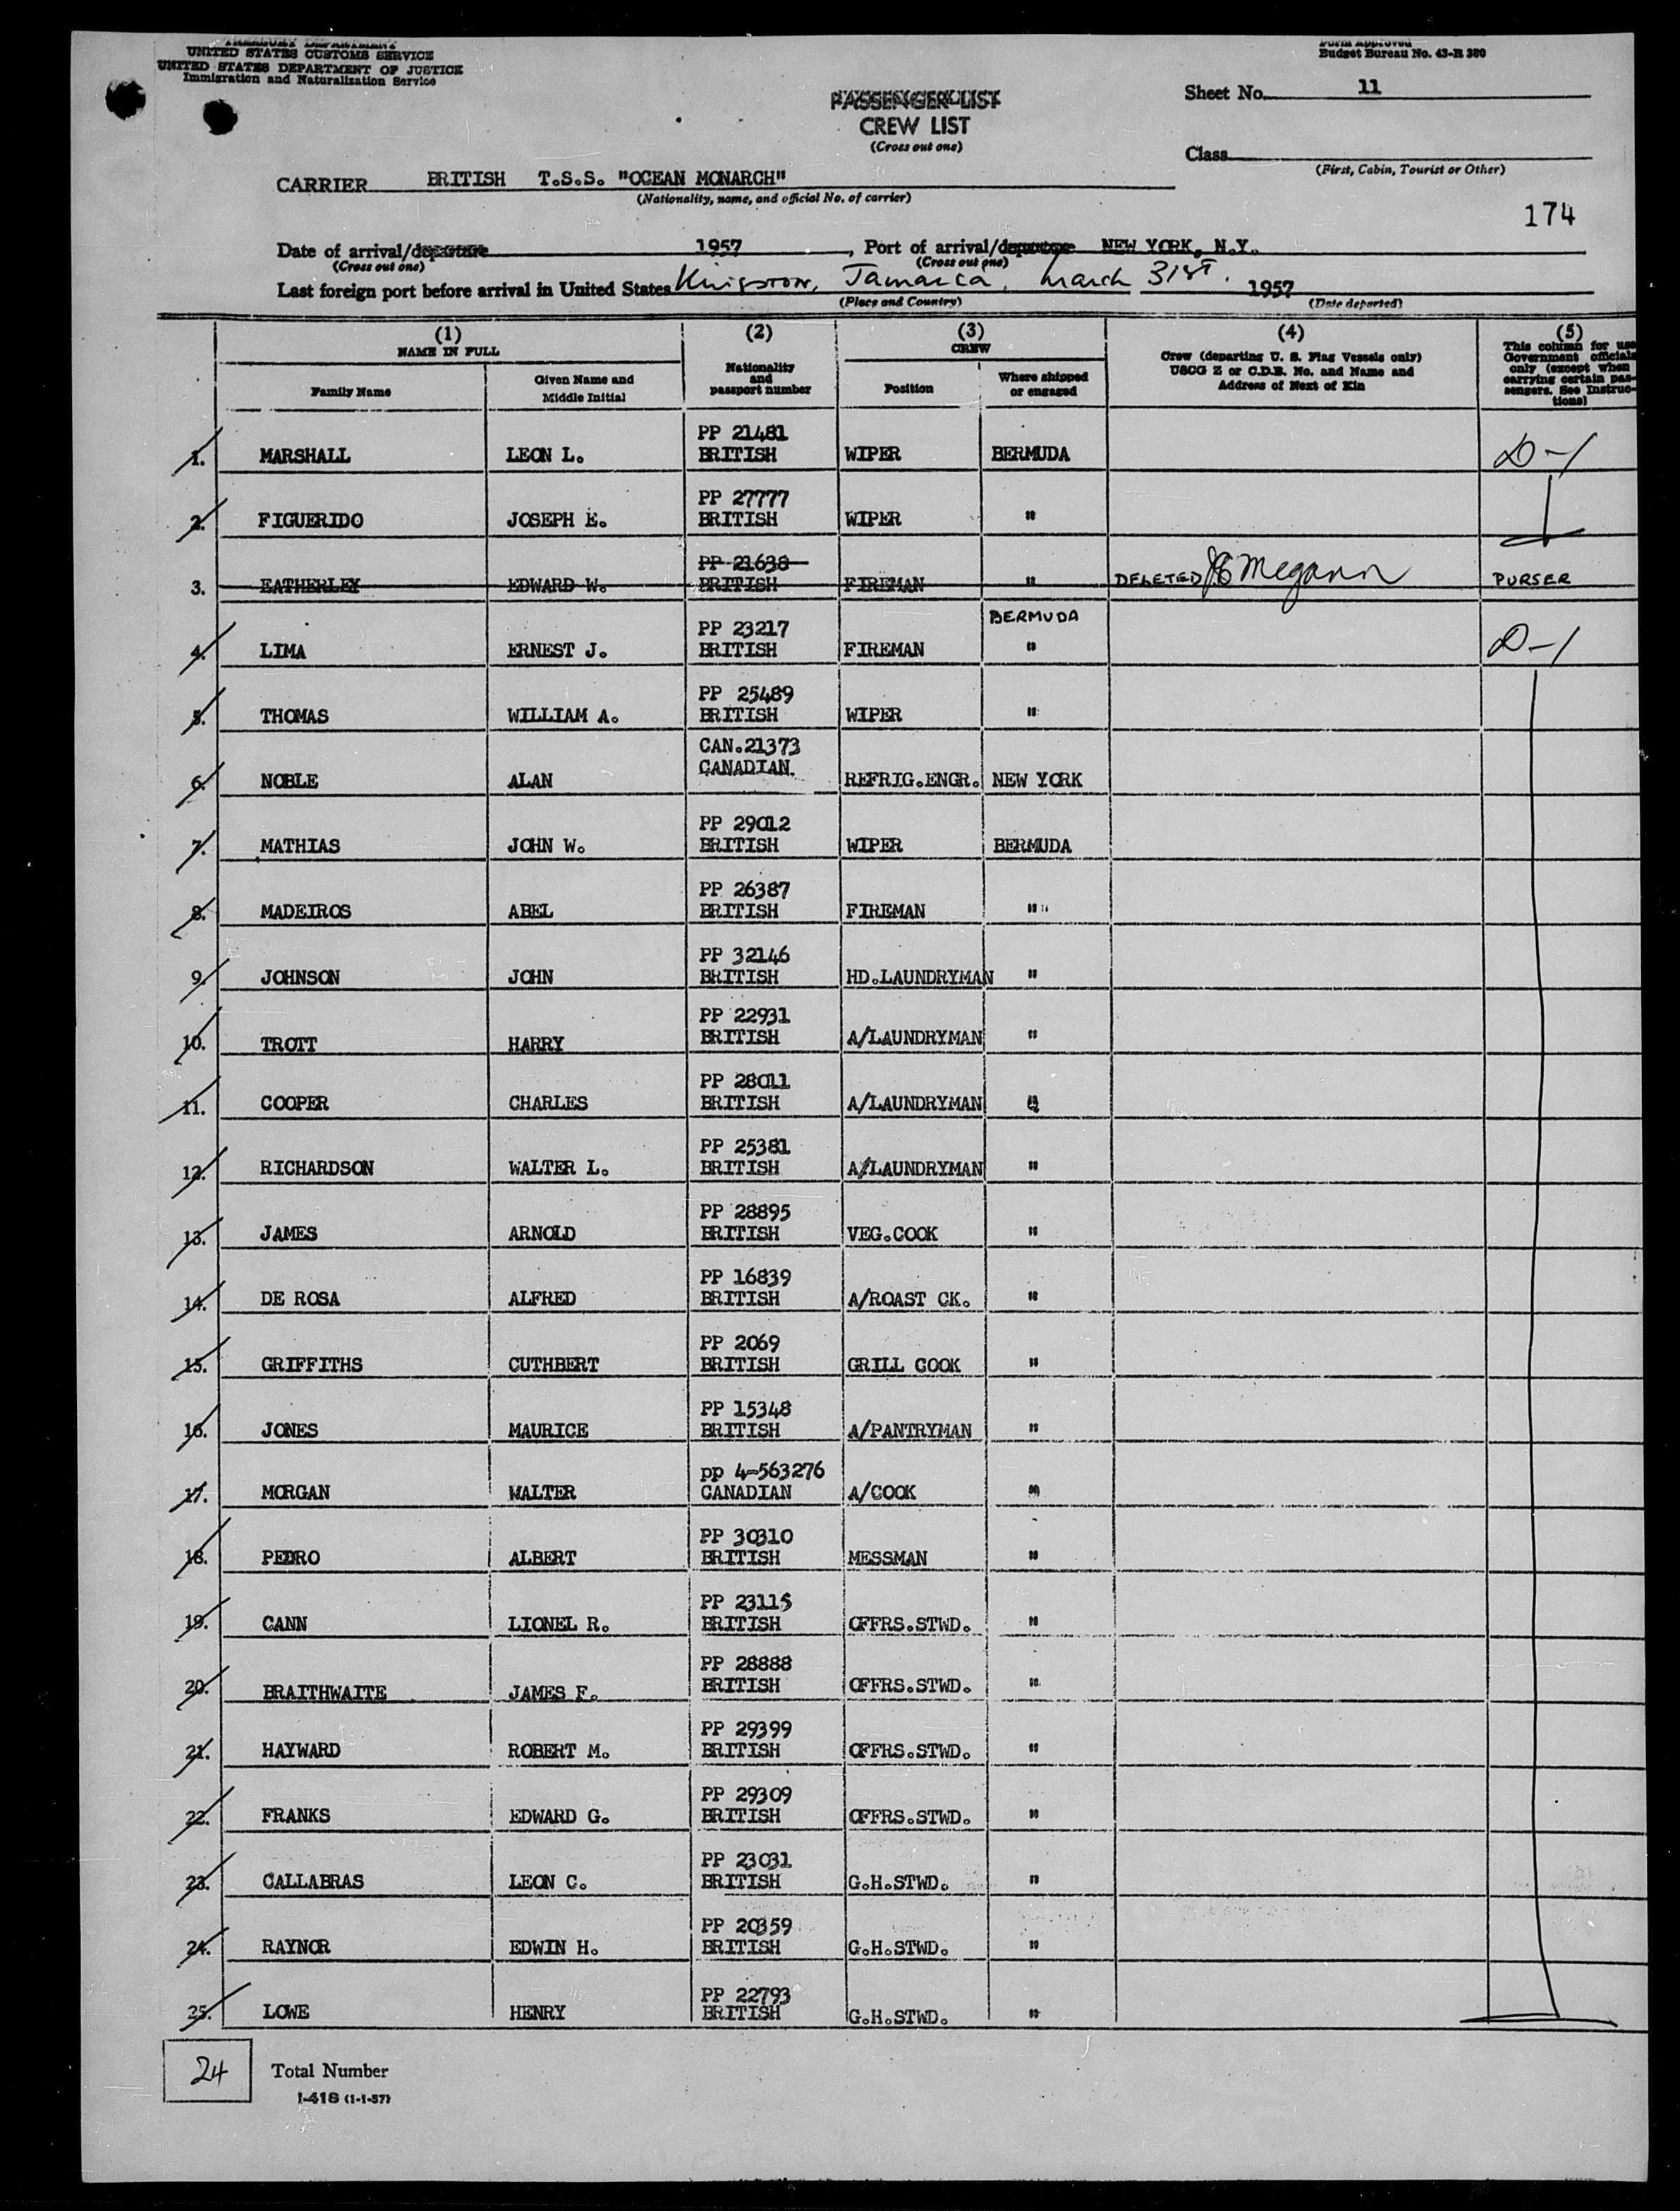 TREASURY DEPARTMENT
UNITED STATES CUSTOMS SERVICE
UNITED STATES DEPARTMENT OF JUSTICE
Immigration and Naturalization Service
Form Approved
Budget Bureau No. 43-R 380
Sheet No. 11
PASSENGER LIST
CREW LIST
(Cross out one)
Class
(First, Cabin, Tourist or Other)
CARRIER BRITISH T.S.S. "OCEAN MONARCH"
(Nationality, name, and official No. of carrier)
174
Date of arrival/departure 1957, Port of arrival/departure NEW YORK, N.Y.
(Cross out one) (Cross out one)
Last foreign port before arrival in United States Kingston, Jamaica, March 31st. 1957
(Place and Country) (Date departed)
(1) (2) (3) (4) (5)
NAME IN FULL
Family Name
Given Name and Middle Initial
Nationality and passport number
CREW
Position
Where shipped or engaged
Crew (departing U. S. Flag Vessels only)
USCG Z or C.D.B. No. and Name and
Address of Next of Kin
This column for use
Government officials
only (except when
carrying certain pas-
sengers. See Instruc-
tions)
1. MARSHALL LEON L. PP 21481 BRITISH WIPER BERMUDA D-1
2. FIGUERIDO JOSEPH E. PP 27777 BRITISH WIPER "
3. EATHERLEY EDWARD W. PP 21638 BRITISH FIREMAN " DELETED JE Megann PURSER
4. LIMA ERNEST J. PP 23217 BRITISH FIREMAN BERMUDA " D-1
5. THOMAS WILLIAM A. PP 25489 BRITISH WIPER "
6. NOBLE ALAN CAN.21373 CANADIAN. REFRIG.ENGR. NEW YORK
7. MATHIAS JOHN W. PP 29012 BRITISH WIPER BERMUDA
8. MADEIROS ABEL PP 26387 BRITISH FIREMAN "
9. JOHNSON JOHN PP 32146 BRITISH HD.LAUNDRYMAN "
10. TROTT HARRY PP 22931 BRITISH A/LAUNDRYMAN "
11. COOPER CHARLES PP 28011 BRITISH A/LAUNDRYMAN "
12. RICHARDSON WALTER L. PP 25381 BRITISH A/LAUNDRYMAN "
13. JAMES ARNOLD PP 28895 BRITISH VEG.COOK "
14. DE ROSA ALFRED PP 16839 BRITISH A/ROAST CK. "
15. GRIFFITHS CUTHBERT PP 2069 BRITISH GRILL COOK "
16. JONES MAURICE PP 15348 BRITISH A/PANTRYMAN "
17. MORGAN WALTER pp 4-563276 CANADIAN A/COOK "
18. PEDRO ALBERT PP 30310 BRITISH MESSMAN "
19. CANN LIONEL R. PP 23115 BRITISH OFFRS.STWD. "
20. BRAITHWAITE JAMES F. PP 28888 BRITISH OFFRS.STWD. "
21. HAYWARD ROBERT M. PP 29399 BRITISH OFFRS.STWD. "
22. FRANKS EDWARD G. PP 29309 BRITISH OFFRS.STWD. "
23. CALLABRAS LEON C. PP 23031 BRITISH G.H.STWD. "
24. RAYNOR EDWIN H. PP 20359 BRITISH G.H.STWD. "
25. LOWE HENRY PP 22793 BRITISH G.H.STWD. "
24 Total Number
I-418 (1-1-57)